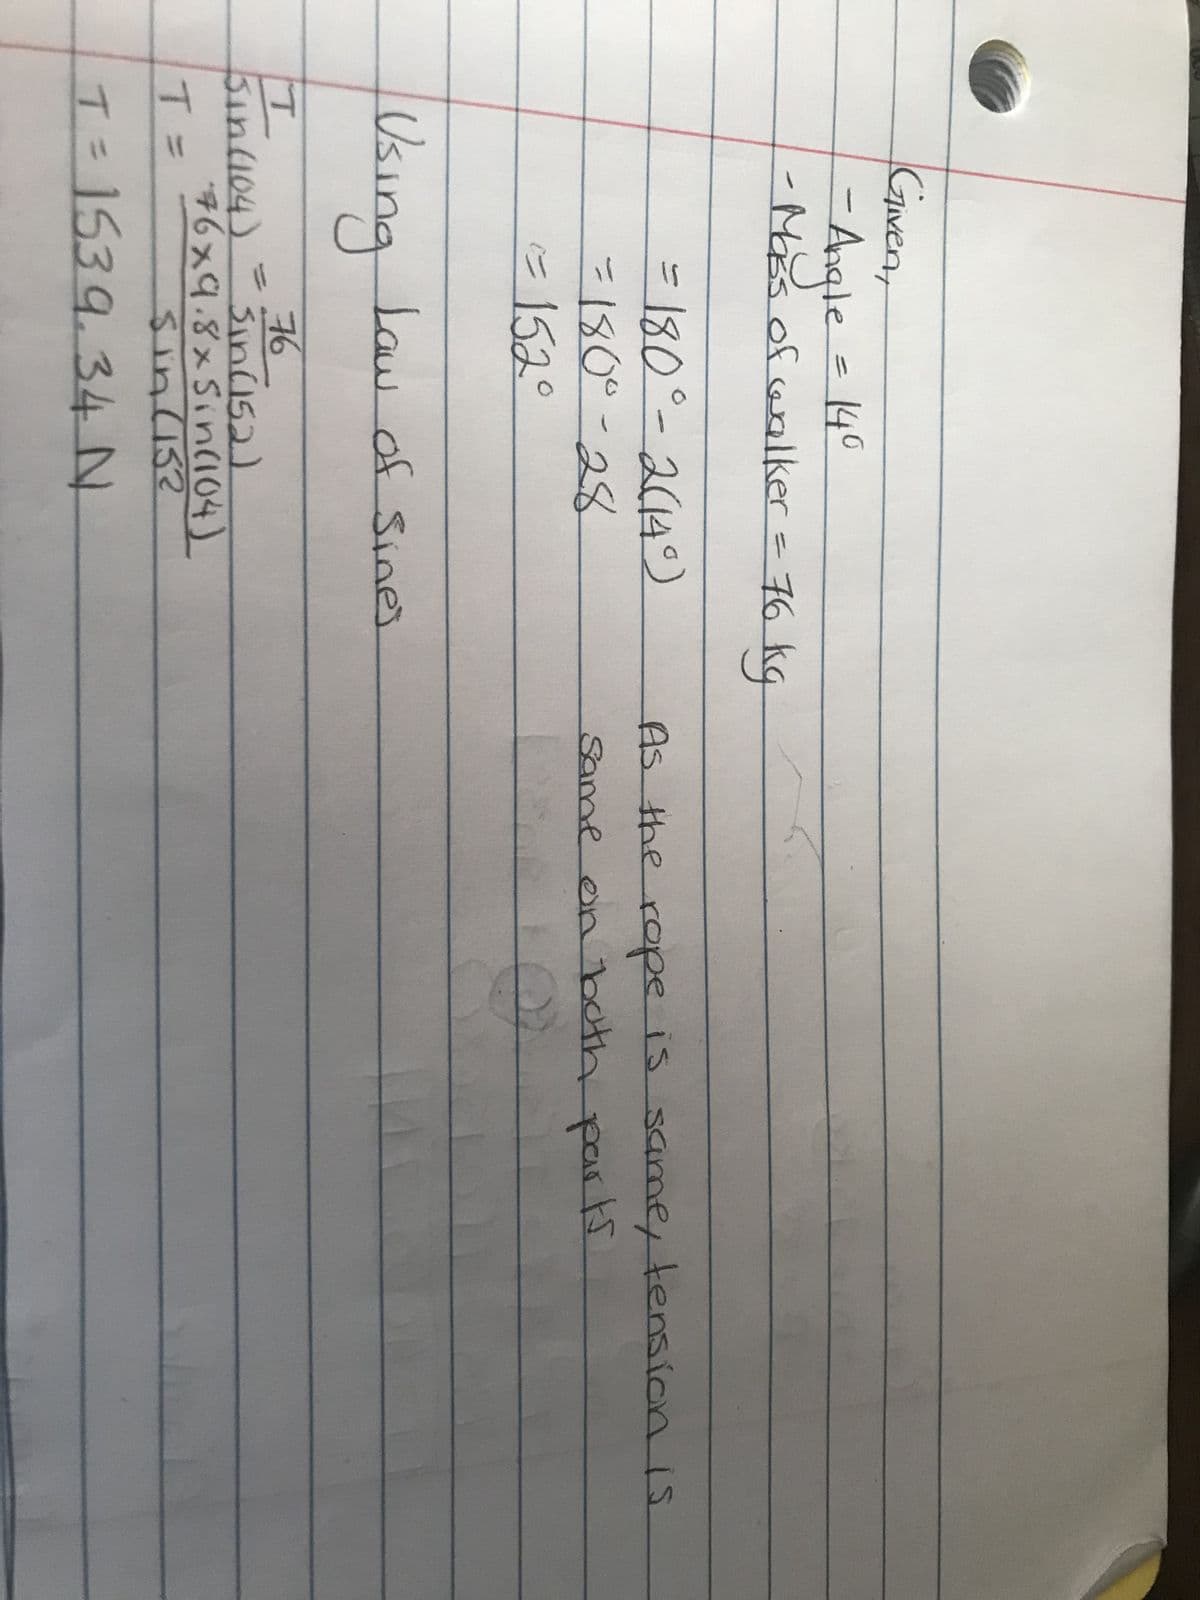 Given,
- Angle = 14°
- Mass of walker = 76 kg
= 180° - 2(14°) As the rope is same, tension is
= 180° - 28 same on both parts
= 152°
Using Law of Sines
T/Sin(104) = 76/Sin(152)
T = 76x9.8x Sin(104)/Sin(152
T = 1539.34 N